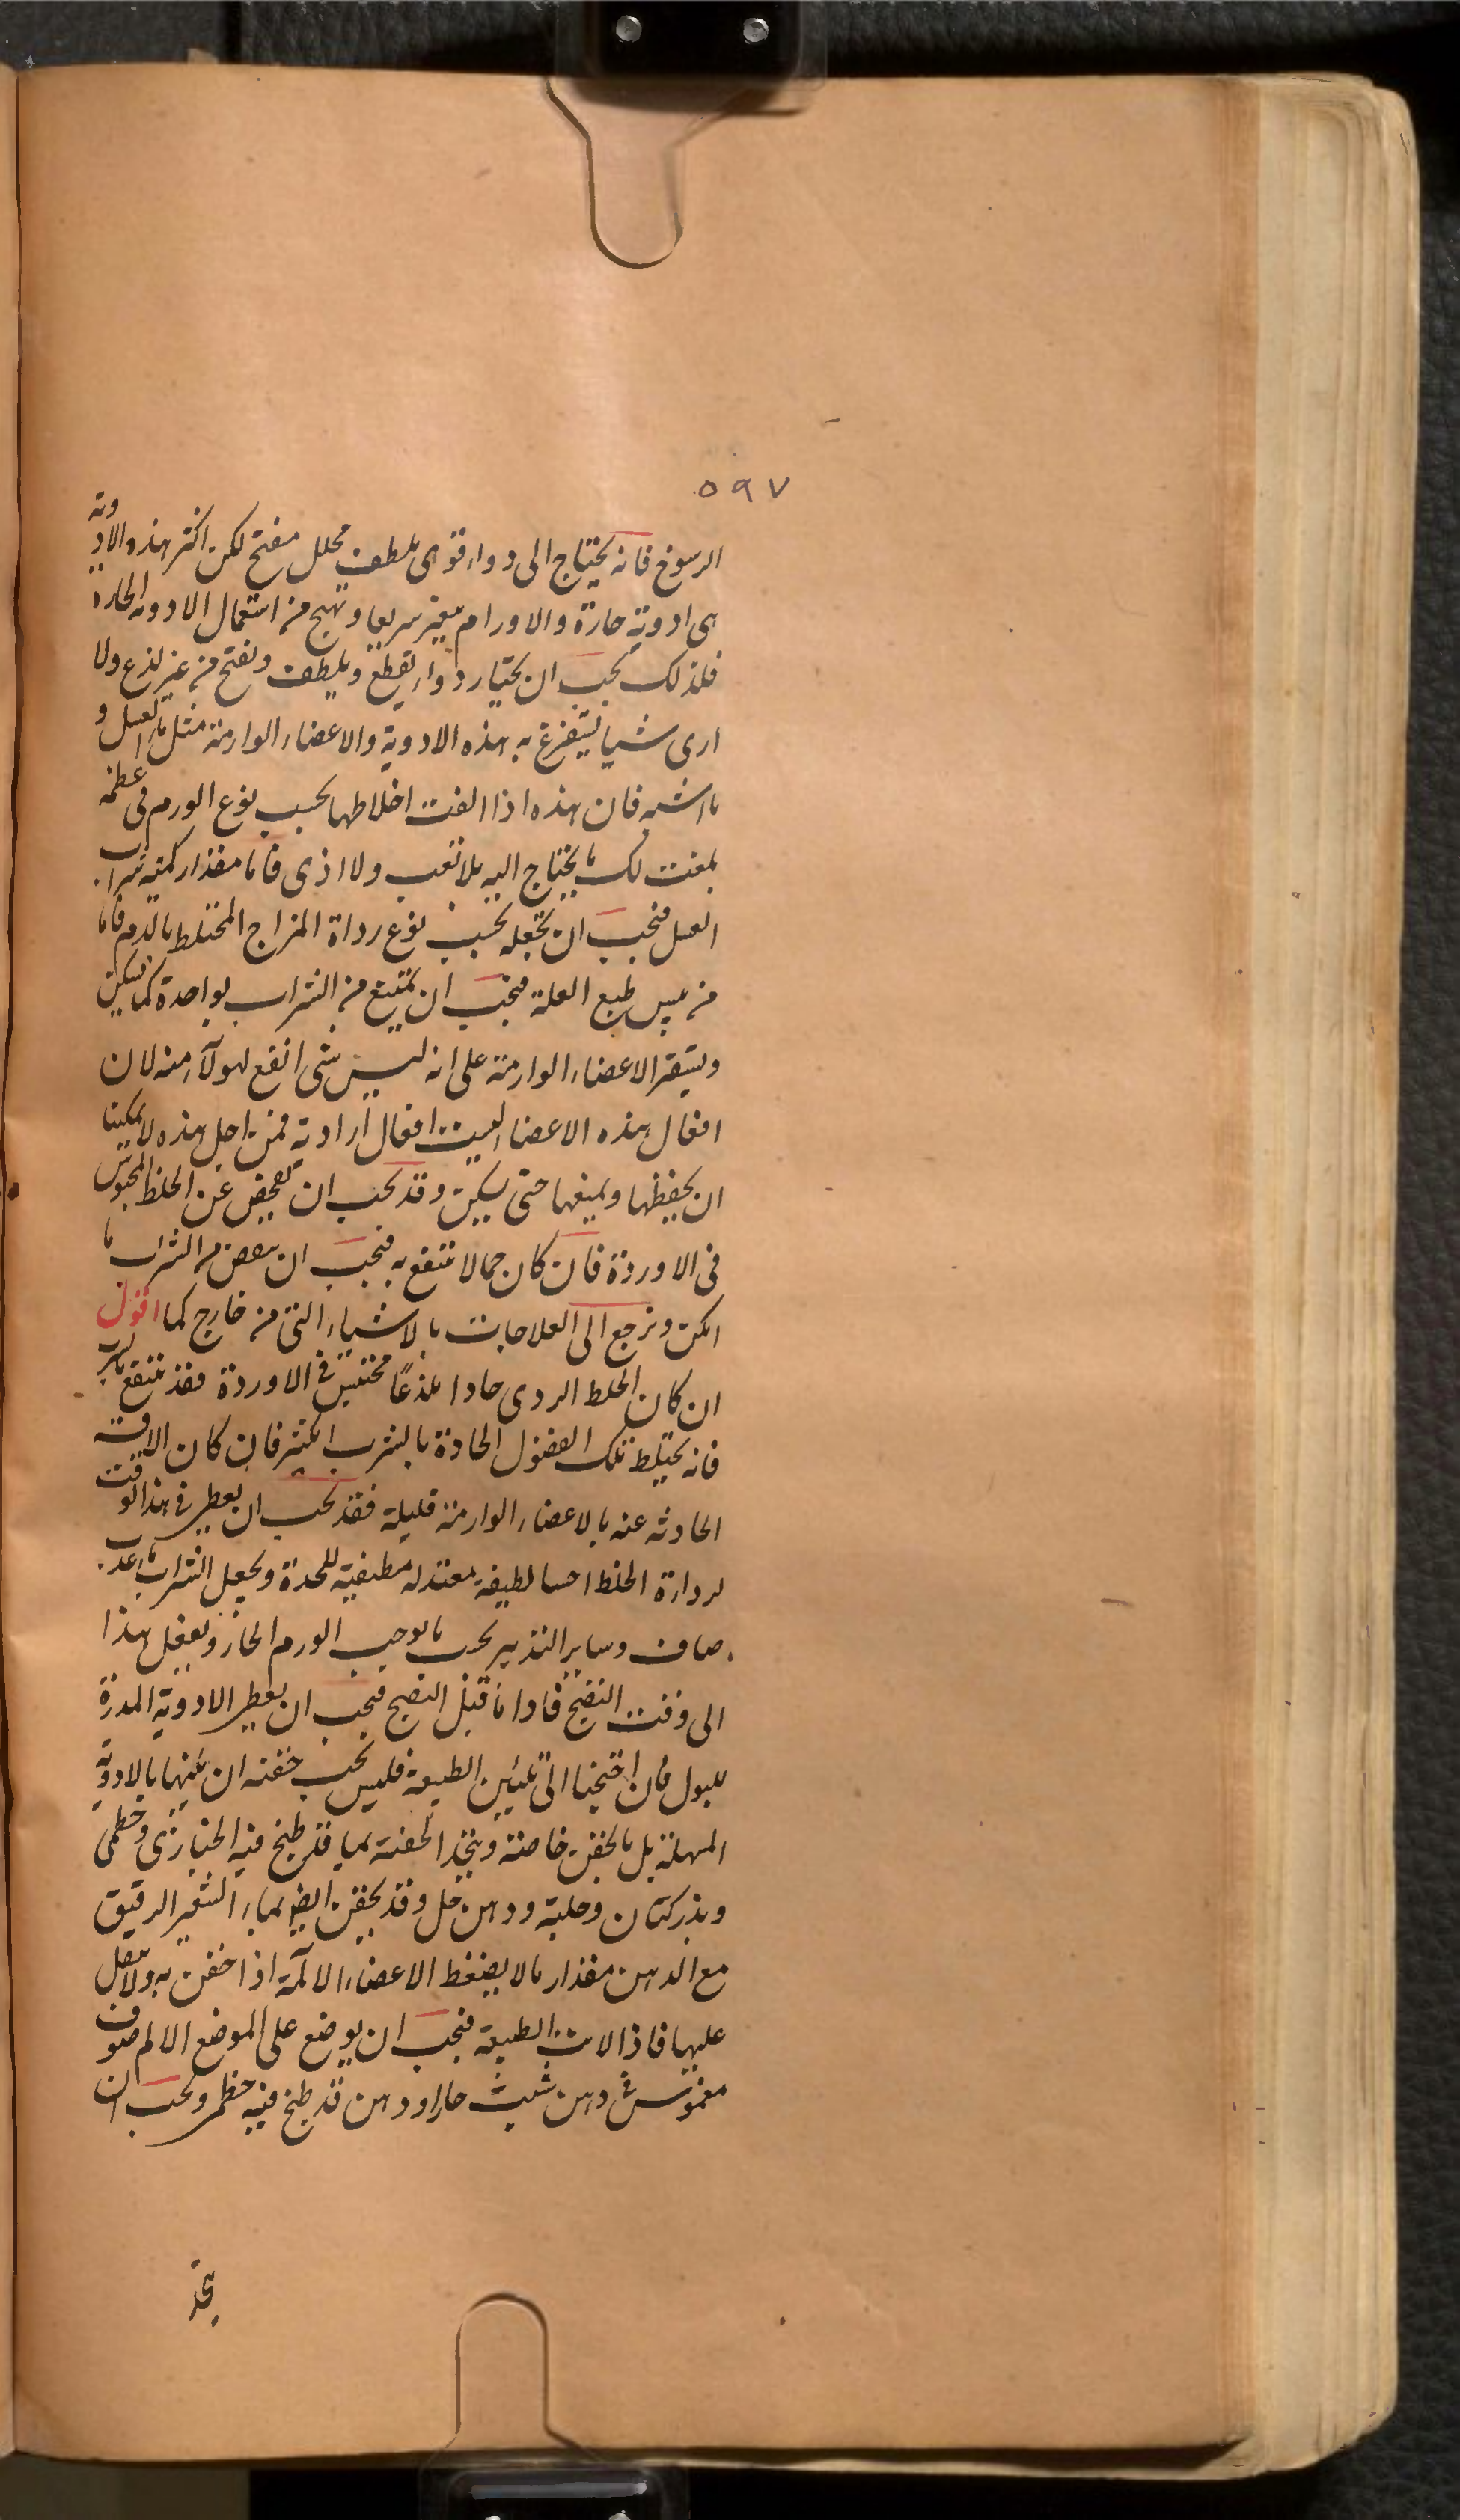 ٥٩٧
الرسوخ فانه يحتاج الى دواء قوى يلطف محلل مفتح لكن اكثر هذه الادوية
هى ادوية حارة والاورام سريعا وتهيج من استعمال الادوية الحارة
فلذلك يجب ان يختار دواء يقطع ويلطف ويفتح من غير لذع ولا
ارى شيا يستفرغ به هذه الادوية والاعضاء الوارمة مثل ماء العسل و
ما اشبه فان هذه اذا الفت اخلاطها بحسب نوع الورم فى عظمه
بلغت لك ما يحتاج اليه بلا تعب ولا اذى فاما مقدار كمية شراب
العسل فيجب ان تجعله بحسب نوع رداة المزاج المختلط بالدم فاما
من طبع العلة فيجب ان يمتنع من الشراب بواحدة كما يسكن
ويستقر الاعضاء الوارمة على انه ليس شى انفع لهولآء منه لان
افعال هذه الاعضاء ليست افعال ارادية فمن اجل هذه لا يمكننا
ان يحفظها ويمنعها حتى يسكن وقد يجب ان تفحص عن الخلط المحبوس
فى الاوردة فان كان مما لا ننتفع به فيجب ان ينقص من الشراب ما
امكن ونرجع الى العلاجات بالاشياء التى من خارج كما اقول
ان كان الخلط الردى حادا لذعًا محتبس فى الاوردة فقد ننتفع
فانه يختلط تلك الفضول الحادة بالشرب الكثير فان كان الافة
الحادثه عنه بالاعضاء الوارمة قليلة فقد يجب ان يعطى فى هذا الوقت
لرداءة الخلط احسا لطيفة معتدله مطفية للحدة ويجعل الشراب ماء عذب
صاف وساير التدبير بحسب ما يوجب الورم الحار ويفعل هذا
الى وقت النضج فاما قبل النضج فيجب ان يعطى الادوية المدرة
للبول فان احتجنا الى تليين الطبيعة فليس يجب حقنه ان يلينها بالادوية
المسهلة بل بالحقن خاصة ويتخذ الحقنة بما قد طبخ فيه الخبازى وخطمى
وبذر كتان وحلبة ودهن حل وقد يحقن ايضا بماء الشعير الرقيق
مع الدهن مقدار ما لا يضغط الاعضاء الآلمة اذا حقن به ولا يثقل
عليها فاذا لانت الطبيعة فيجب ان يوضع على الموضع الالم صوف
مغموس فى دهن شبث حار او دهن قد طبخ فيه خطمى ويجب ان
يتخذ